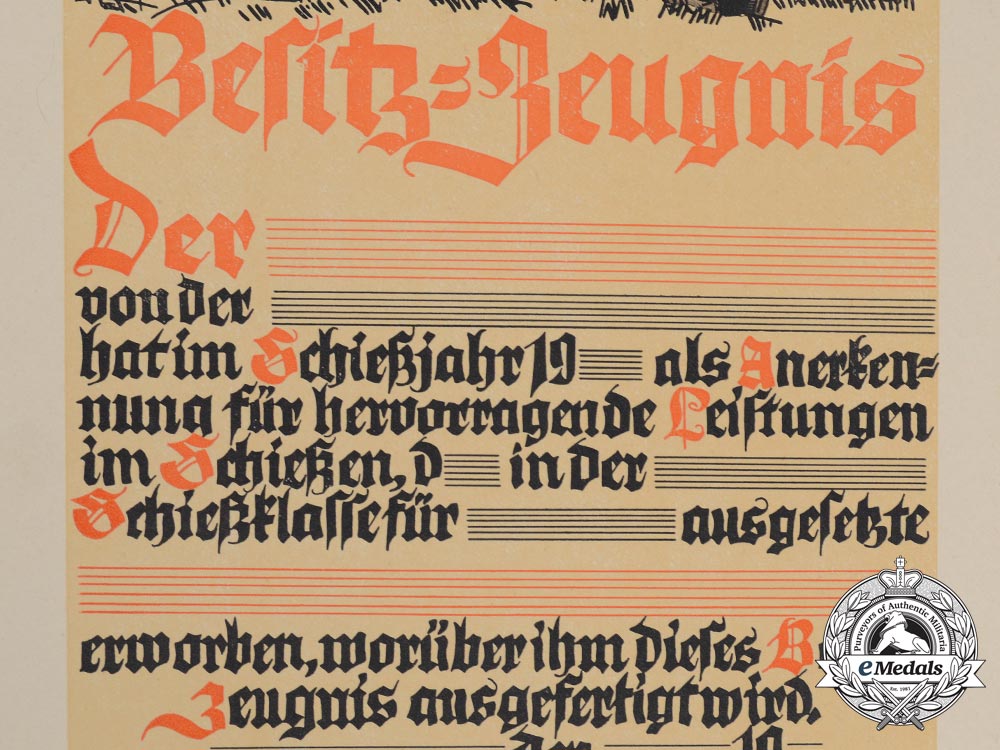 Besitz=Zeugnis
Der
von der
hat im Schießjahr 19 als Anerken=
nung für hervorragende Leistungen
im Schießen, d in der
Schießklasse für ausgesetzte
erworben, worüber ihm dieses B
Zeugnis ausgefertigt wird.
den 19
Purveyors of Authentic Militaria
eMedals
Est. 1987